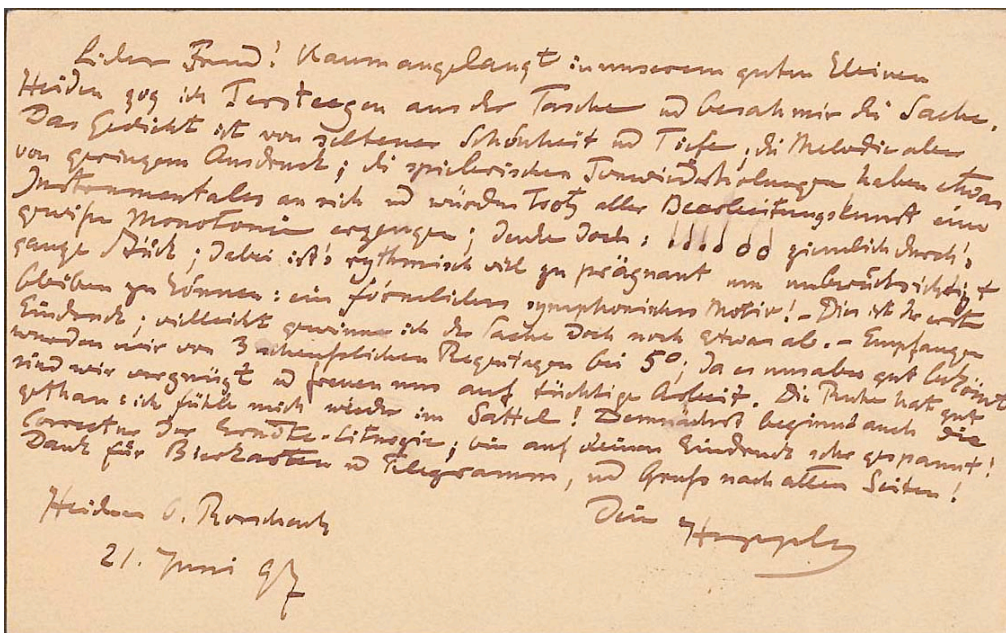 Lieber Freund! Kaum angelangt in unserem guten kleinen
Heiden zog ich Tersteegen aus der Tasche und besah mir die Sache.
Das Gedicht ist von seltener Schönheit und Tiefe; die Melodie aber
von geringem Ausdruck; die spielerischen Tonwiederholungen haben etwas
Instrumentales an sich und würden trotz aller Bearbeitungskunst eine
gewisse Monotonie erzeugen; denke doch: ziemlich durch's
ganze Stück; dabei ist's rythmisch viel zu prägnant um unberücksichtigt
bleiben zu können: ein förmliches symphonisches Motiv! – Dies ist der erste
Eindruck; vielleicht gewinne ich der Sache doch noch etwas ab. – Empfangen
wurden wir von 3 scheusslichen Regentagen bei 5°; da es uns aber gut bekömmt
sind wir vergnügt und freuen uns auf tüchtige Arbeit. Die Ruhe hat gut
gethan: ich fühle mich wieder im Sattel! Demnächst beginnt auch die
Correctur der Erndte-Liturgie; bin auf deinen Eindruck sehr gespannt!
Dank für Bierkarten und Telegramm, und Gruss nach allen Seiten!
Heiden b. Rorschach
Dein
21. Juni 97